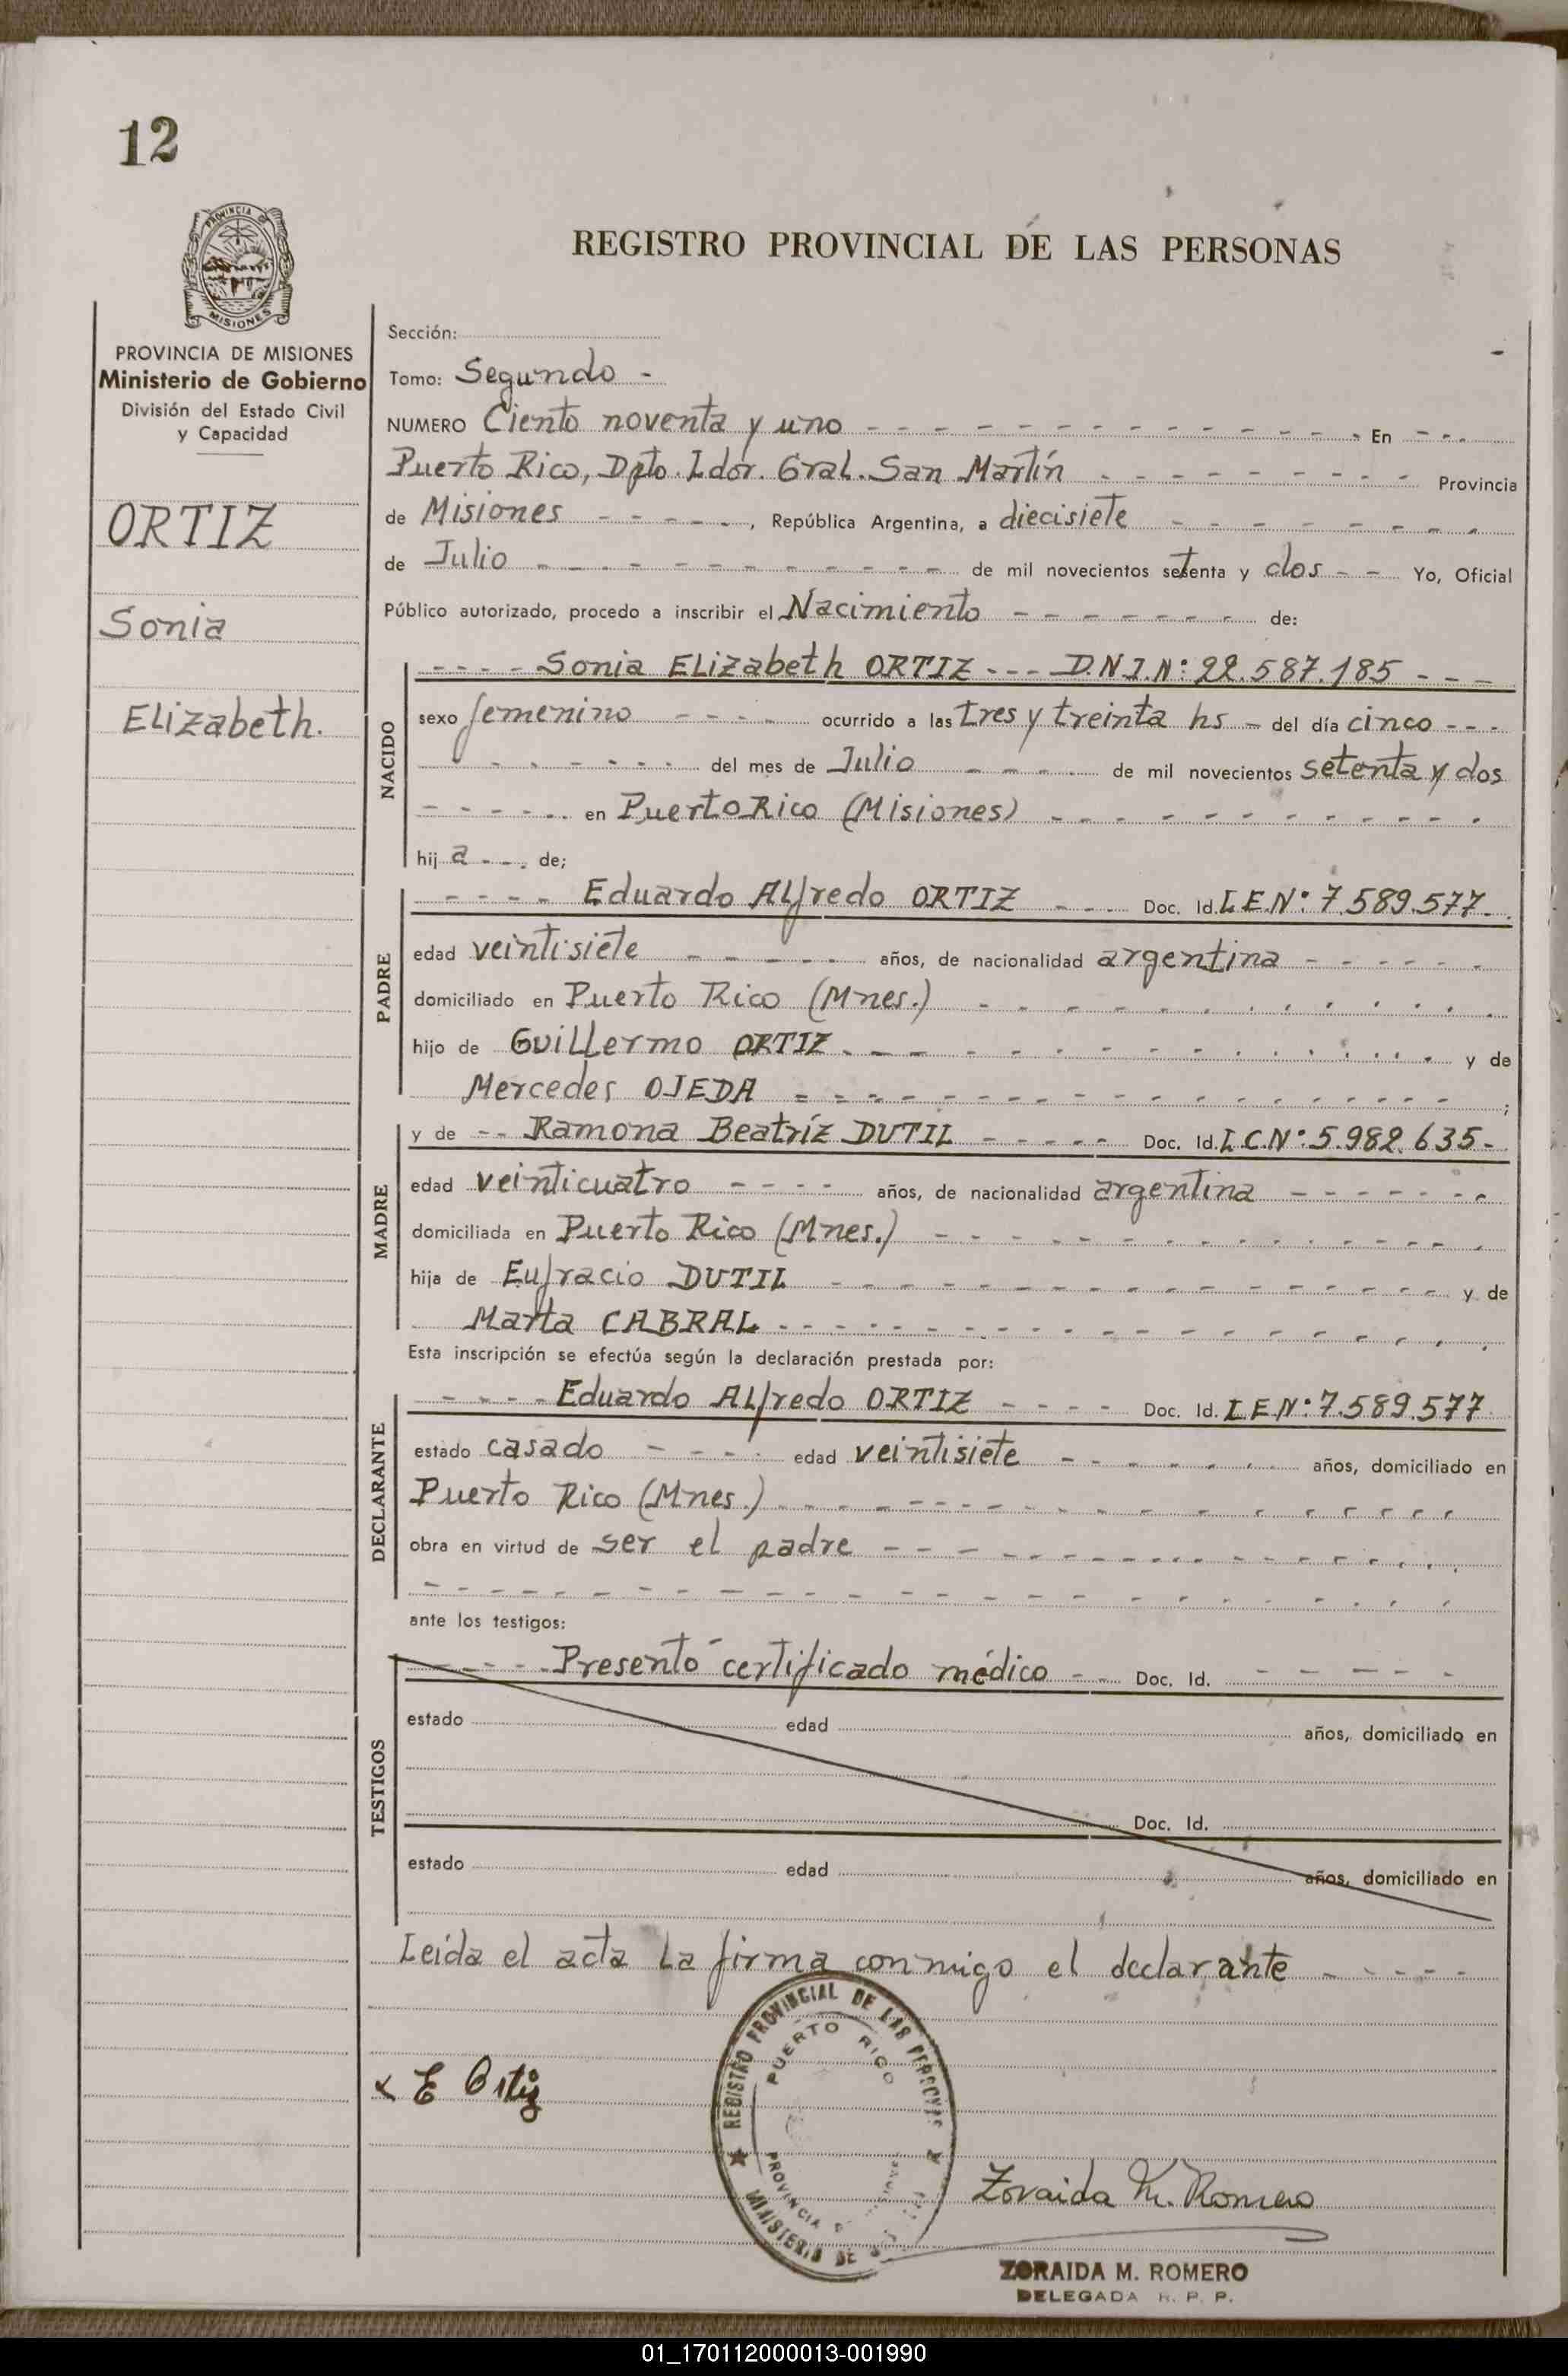 12
PROVINCIA DE
MISIONES
REGISTRO PROVINCIAL DE LAS PERSONAS
PROVINCIA DE MISIONES
Ministerio de Gobierno
División del Estado Civil
y Capacidad
ORTIZ
Sonia
Elizabeth.
Sección:
Tomo: Segundo -
NUMERO Ciento noventa y uno - - - En - - -
Puerto Rico, Dpto. Ldor. Gral. San Martín - - - Provincia
de Misiones - - - , República Argentina, a diecisiete - - -
de Julio - - - de mil novecientos setenta y dos - - Yo, Oficial
Público autorizado, procedo a inscribir el Nacimiento - - - de:
NACIDO
- - - - Sonia Elizabeth ORTIZ - - - D.N.I.Nº: 22.587.185 - - -
sexo femenino - - - - ocurrido a las tres y treinta hs - del día cinco - - -
- - - del mes de Julio - - - de mil novecientos setenta y dos
- - - en Puerto Rico (Misiones) - - -
hij a - - . de;
PADRE
- - - - Eduardo Alfredo ORTIZ - - - Doc. Id. L.E.Nº: 7.589.577.
edad veintisiete - - - años, de nacionalidad argentina - - -
domiciliado en Puerto Rico (Mnes.) - - -
hijo de Guillermo ORTIZ - - - y de
Mercedes OJEDA - - - ;
MADRE
y de - - Ramona Beatríz DUTIL - - - Doc. Id. L.C.Nº: 5.982.635-
edad veinticuatro - - - - años, de nacionalidad argentina - - -
domiciliada en Puerto Rico (Mnes.) - - -
hija de Eufracio DUTIL - - - y de
Marta CABRAL - - -
Esta inscripción se efectúa según la declaración prestada por:
DECLARANTE
- - - - Eduardo Alfredo ORTIZ - - - - Doc. Id. L.E.Nº: 7.589.577
estado casado - - - - edad veintisiete - - - años, domiciliado en
Puerto Rico (Mnes.) - - -
obra en virtud de ser el padre - - -
- - -
ante los testigos:
TESTIGOS
- - - - Presentó certificado médico - - Doc. Id. - - - - -
estado edad años, domiciliado en
Doc. Id.
estado edad años, domiciliado en
Leída el acta la firma conmigo el declarante - - - -
x E Ortiz
REGISTRO PROVINCIAL DE LAS PERSONAS
PUERTO RICO
PROVINCIA
MINISTERIO DE
Zoraida M. Romero
ZORAIDA M. ROMERO
DELEGADA R. P. P.
01_170112000013-001990